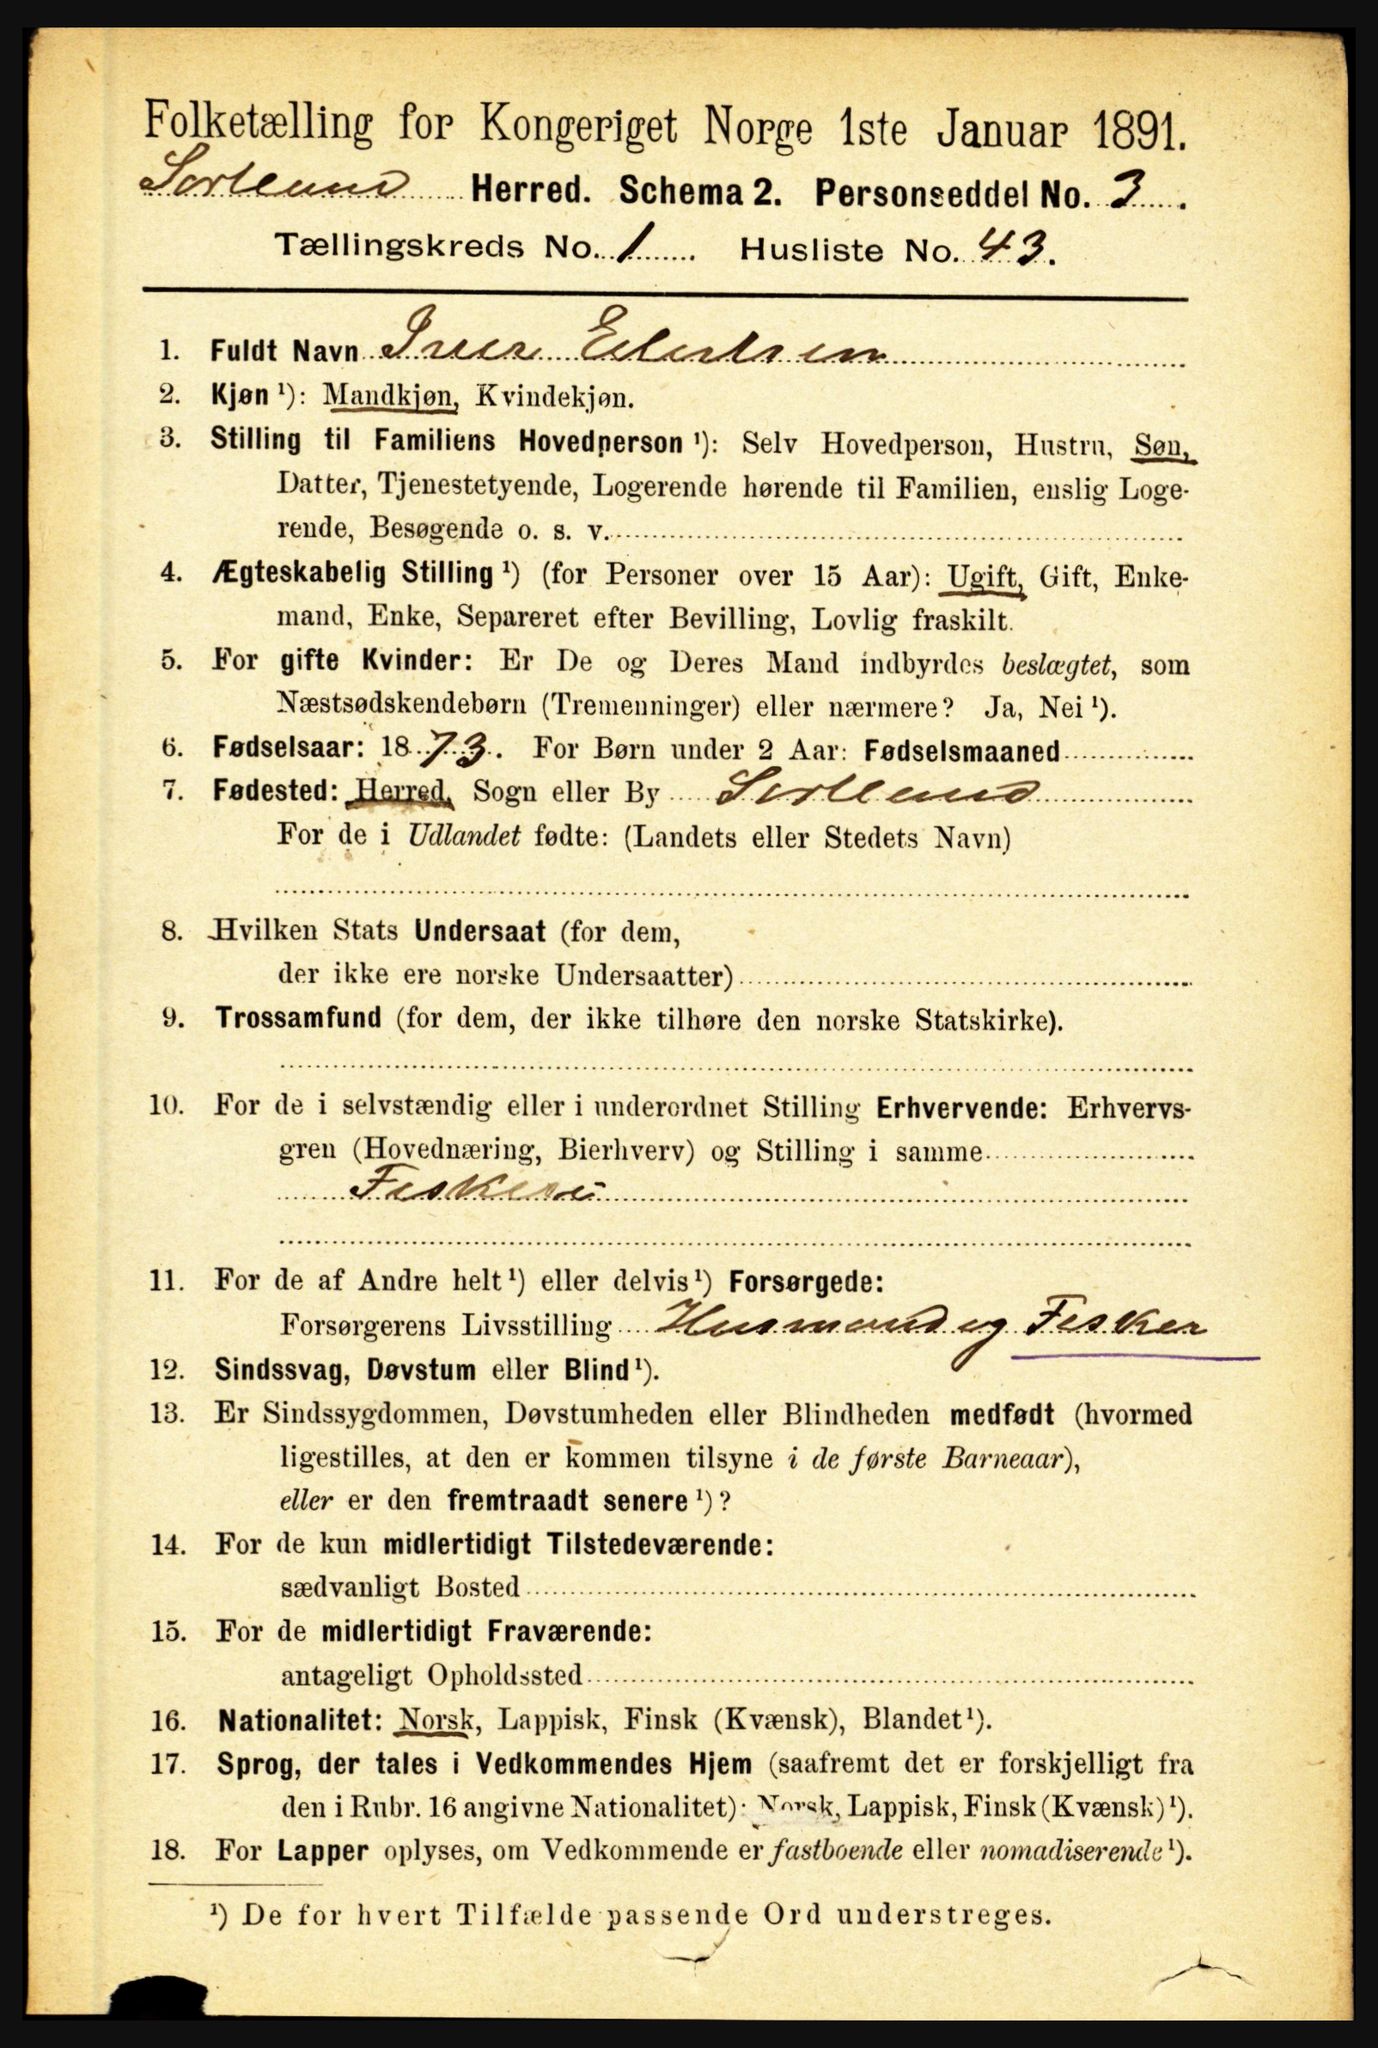 Folketælling for Kongeriget Norge 1ste Januar 1891.
Sortland Herred. Schema 2. Personseddel No. 3.
Tællingskreds No. 1. Husliste No. 43.
1. Fuldt Navn Iver Edertsen
2. Kjøn ¹): Mandkjøn, Kvindekjøn.
3. Stilling til Familiens Hovedperson ¹): Selv Hovedperson, Hustru, Søn,
Datter, Tjenestetyende, Logerende hørende til Familien, enslig Loge-
rende, Besøgende o. s. v.
4. Ægteskabelig Stilling ¹) (for Personer over 15 Aar): Ugift, Gift, Enke-
mand, Enke, Separeret efter Bevilling, Lovlig fraskilt.
5. For gifte Kvinder: Er De og Deres Mand indbyrdes beslægtet, som
Næstsødskendebørn (Tremenninger) eller nærmere? Ja, Nei ¹).
6. Fødselsaar: 1873. For Børn under 2 Aar: Fødselsmaaned
7. Fødested: Herred, Sogn eller By Sortland
For de i Udlandet fødte: (Landets eller Stedets Navn)
8. Hvilken Stats Undersaat (for dem,
der ikke ere norske Undersaatter)
9. Trossamfund (for dem, der ikke tilhøre den norske Statskirke).
10. For de i selvstændig eller i underordnet Stilling Erhvervende: Erhvervs-
gren (Hovednæring, Bierhverv) og Stilling i samme
Fiskeri
11. For de af Andre helt ¹) eller delvis ¹) Forsørgede:
Forsørgerens Livsstilling Husmand og Fisker
12. Sindssvag, Døvstum eller Blind ¹).
13. Er Sindssygdommen, Døvstumheden eller Blindheden medfødt (hvormed
ligestilles, at den er kommen tilsyne i de første Barneaar),
eller er den fremtraadt senere ¹)?
14. For de kun midlertidigt Tilstedeværende:
sædvanligt Bosted
15. For de midlertidigt Fraværende:
antageligt Opholdssted
16. Nationalitet: Norsk, Lappisk, Finsk (Kvænsk), Blandet ¹).
17. Sprog, der tales i Vedkommendes Hjem (saafremt det er forskjelligt fra
den i Rubr. 16 angivne Nationalitet): Norsk, Lappisk, Finsk (Kvænsk) ¹).
18. For Lapper oplyses, om Vedkommende er fastboende eller nomadiserende ¹).
¹) De for hvert Tilfælde passende Ord understreges.